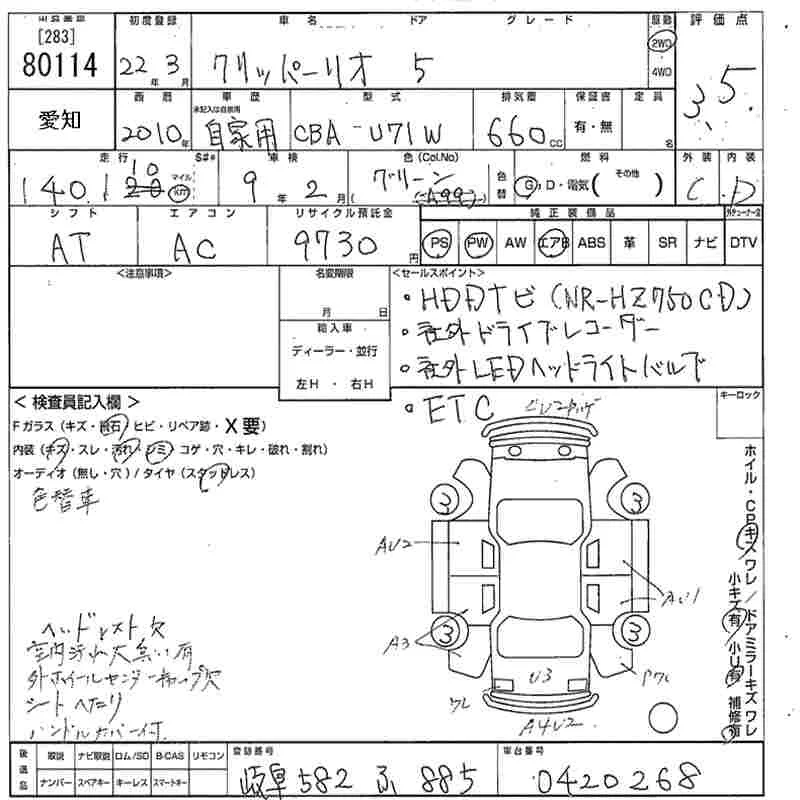 [283]
初度登録 車名 ドア グレード 駆動 評価点
80114 22年3月 クリッパーリオ 5 2WD 4WD 3.5
愛知
西暦 車歴 型式 排気量 保証書 定員
未記入は自家用
2010年 自家用 CBA-U71W 660cc 有・無 名
走行 S#* 車検 色(Col.No) 燃料 外装 内装
140.1 10 20 マイル km 9年2月 グリーン 色替 G・D・電気( その他 ) C D
シフト エアコン リサイクル預託金 純正装備品
AT AC 9730円 PS PW AW エアB ABS 革 SR ナビ DTV
<注意事項> 名変期限 <セールスポイント>
月 日
輸入車
ディーラー・並行
左H・右H
・HDDナビ(NR-HZ750CD)
・社外ドライブレコーダー
・社外LEDヘッドライトバルブ
・ETC
キーロック
<検査員記入欄>
Fガラス(キズ・飛石・ヒビ・リペア跡・X要)
内装(キズ・スレ・汚れ・シミ・コゲ・穴・キレ・破れ・割れ)
オーディオ(無し・穴)/タイヤ(スタッドレス)
色替車
ヘッドレスト欠
室内汚れ大臭い有
外ホイールセンターキャップ欠
シートヘたり
ハンドルカバー付
3 3
AU2
AU1
A3
3 3
U3
ワレ
Pワレ
A4U2
ホイル・CPキズワレ/ドアミラーキズワレ
小キズ有 小U有 補修有
後送品 取説 ナビ取説 ロム/SD B-CAS リモコン
ナンバー スペアキー キーレス スマートキー
登録番号 岐阜582 ふ 885
車台番号 0420268